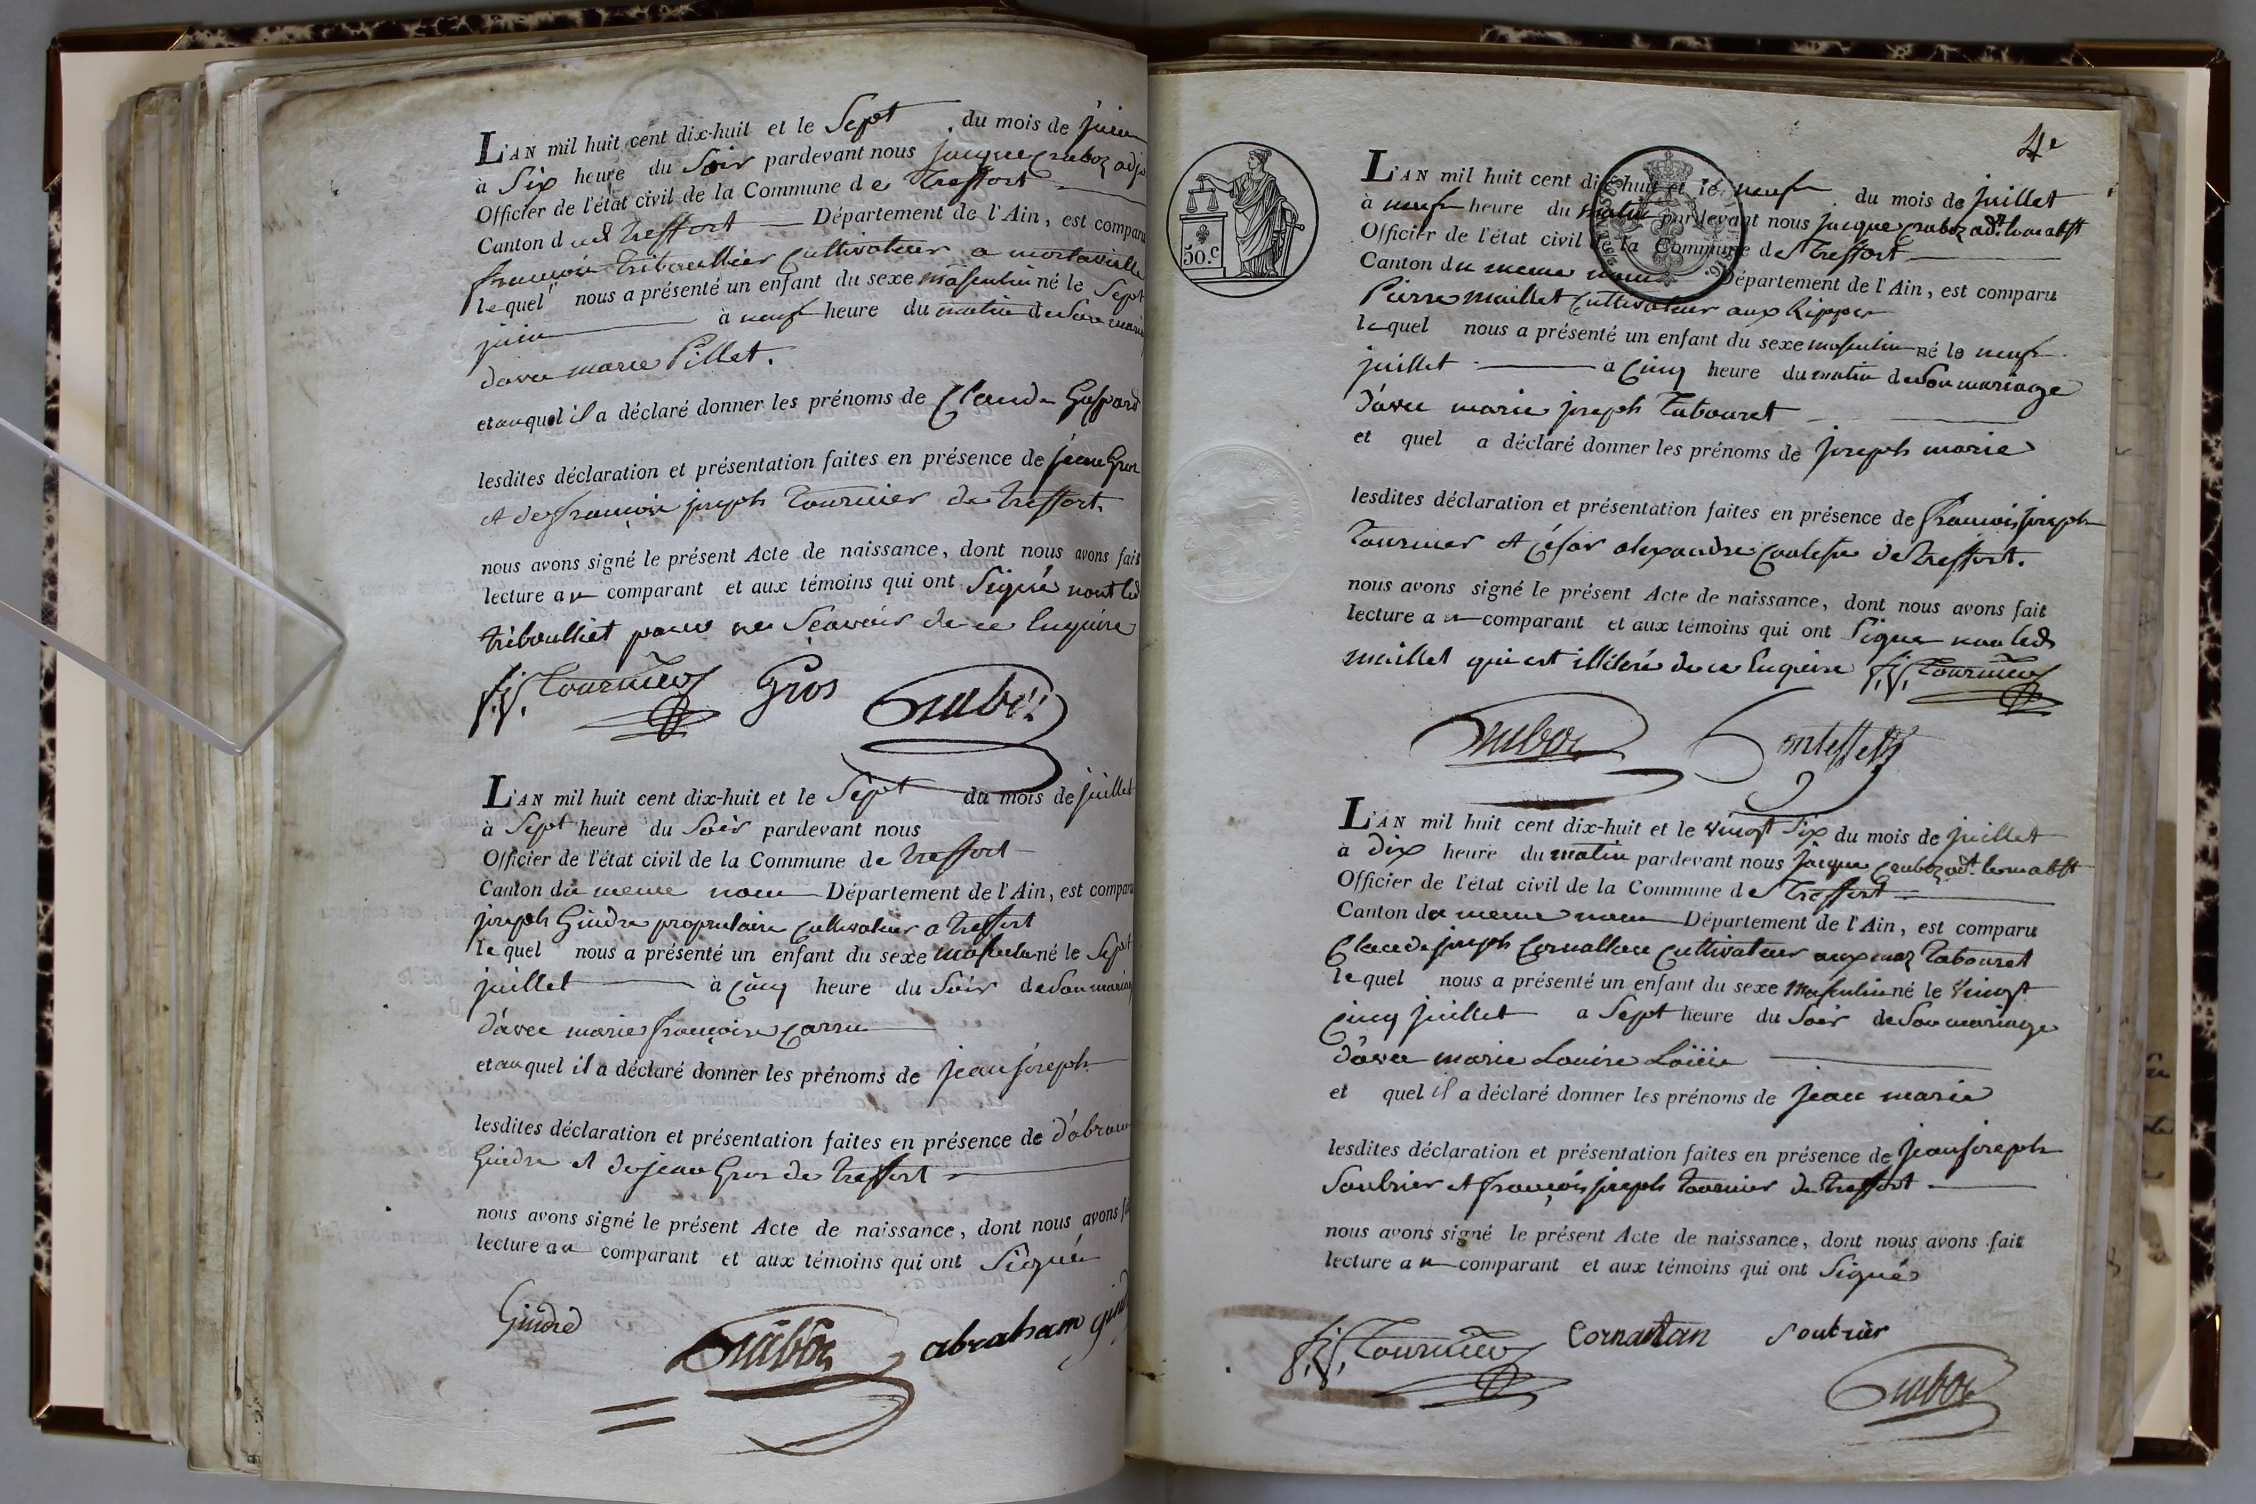 L'AN mil huit cent dix-huit et le Sept du mois de juin
à Six heure du Soir pardevant nous jacque
Officier de l'état civil de la Commune de Treffort
Canton dud Treffort Département de l'Ain, est comparu
françois cultivateur a
lequel nous a présenté un enfant du sexe masculin né le Sept
juin à neuf heure du matin de Son mariage
d'avec marie Pillet.
et auquel il a déclaré donner les prénoms de Claude Gaspard
lesdites déclaration et présentation faites en présence de jean Gros
et de françois joseph Tournier de Treffort.
nous avons signé le présent Acte de naissance, dont nous avons fait
lecture au comparant et aux témoins qui ont Signé non led
pour ne Scavoir de ce Enquire
f. j. Tournier Gros
L'AN mil huit cent dix-huit et le Sept du mois de juillet
à Sept heure du Soir pardevant nous
Officier de l'état civil de la Commune de Treffort
Canton du meme nom Département de l'Ain, est comparu
joseph Gindre propriétaire cultivateur a Treffort
lequel nous a présenté un enfant du sexe masculin né le Sept
juillet à Cinq heure du Soir de Son mariage
d'avec marie françoise
et auquel il a déclaré donner les prénoms de jean joseph
lesdites déclaration et présentation faites en présence de d'abram
Gindre et de jean Gros de Treffort
nous avons signé le présent Acte de naissance, dont nous avons fait
lecture au comparant et aux témoins qui ont Signé
Gindre
abraham gind
4e
50.c
L'AN mil huit cent dix-huit et le neuf du mois de juillet
à neuf heure du matin pardevant nous jacque
Officier de l'état civil de la Commune de Treffort
Canton du meme nom Département de l'Ain, est comparu
Pierre maillet cultivateur aux
lequel nous a présenté un enfant du sexe masculin né le neuf
juillet a Cinq heure du matin de Son mariage
d'avec marie joseph Tabouret
et quel a déclaré donner les prénoms de joseph marie
lesdites déclaration et présentation faites en présence de françois joseph
Tournier et César alexandre de Treffort.
nous avons signé le présent Acte de naissance, dont nous avons fait
lecture au comparant et aux témoins qui ont Signer non led
maillet qui est illiteré de ce Enquire f. j. Tournier
L'AN mil huit cent dix-huit et le vingt Six du mois de juillet
à dix heure du matin pardevant nous jacque
Officier de l'état civil de la Commune de Treffort
Canton du meme nom Département de l'Ain, est comparu
Claude joseph cultivateur aux Tabouret
lequel nous a présenté un enfant du sexe masculin né le Vingt
Cinq juillet a Sept heure du Soir de Son mariage
d'avec marie Louise
et quel il a déclaré donner les prénoms de jean marie
lesdites déclaration et présentation faites en présence de jean joseph
Soubrier et françois joseph Tournier de Treffort
nous avons signé le présent Acte de naissance, dont nous avons fait
lecture au comparant et aux témoins qui ont Signés
f. j. Tournier Cornattan Soubrier